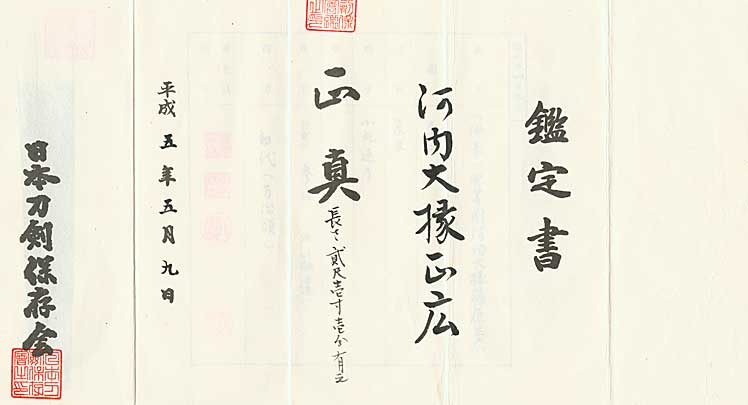 鑑定書
河内大掾正広
正真
長さ弐尺壱寸壱分有之
平成五年五月九日
日本刀剣保存会